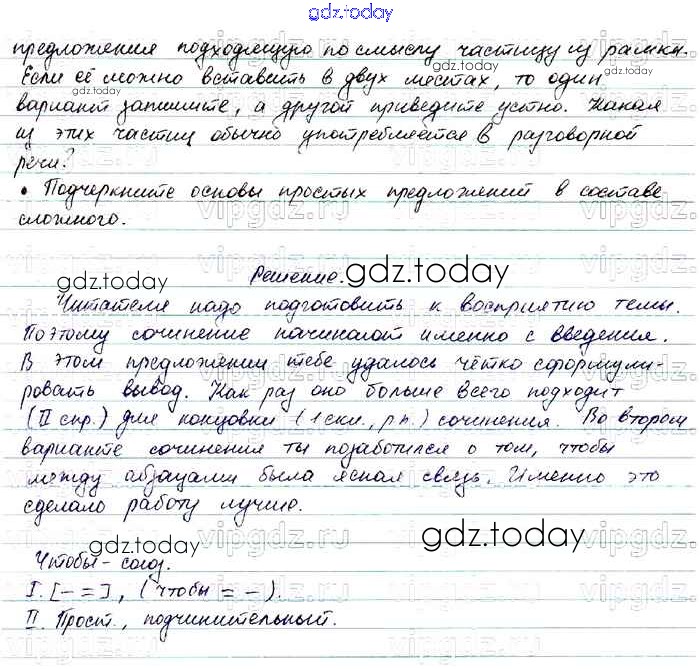 gdz.today
предложения подходящую по смыслу частицу из рамки.
Если её можно вставить в двух местах, то один
вариант запишите, а другой приведите устно. Какая
из этих частиц обычно употребляется в разговорной
речи?
• Подчеркните основы простых предложений в составе
сложного.
Решение.
Читателя надо подготовить к восприятию темы.
Поэтому сочинение начинают именно с введения.
В этом предложении тебе удалось чётко сформули-
ровать вывод. Как раз оно больше всего подходит
(II спр.) для концовки (1 скл., р.п.) сочинения. Во втором
варианте сочинения ты позаботился о том, чтобы
между абзацами была ясная связь. Именно это
сделало работу лучше.
Чтобы - союз.
I. [- =], (чтобы = -).
II. Прост., подчинительный.
gdz.today
gdz.today
gdz.today
gdz.today
gdz.today
gdz.today
gdz.today
gdz.today
vipgdz.ru